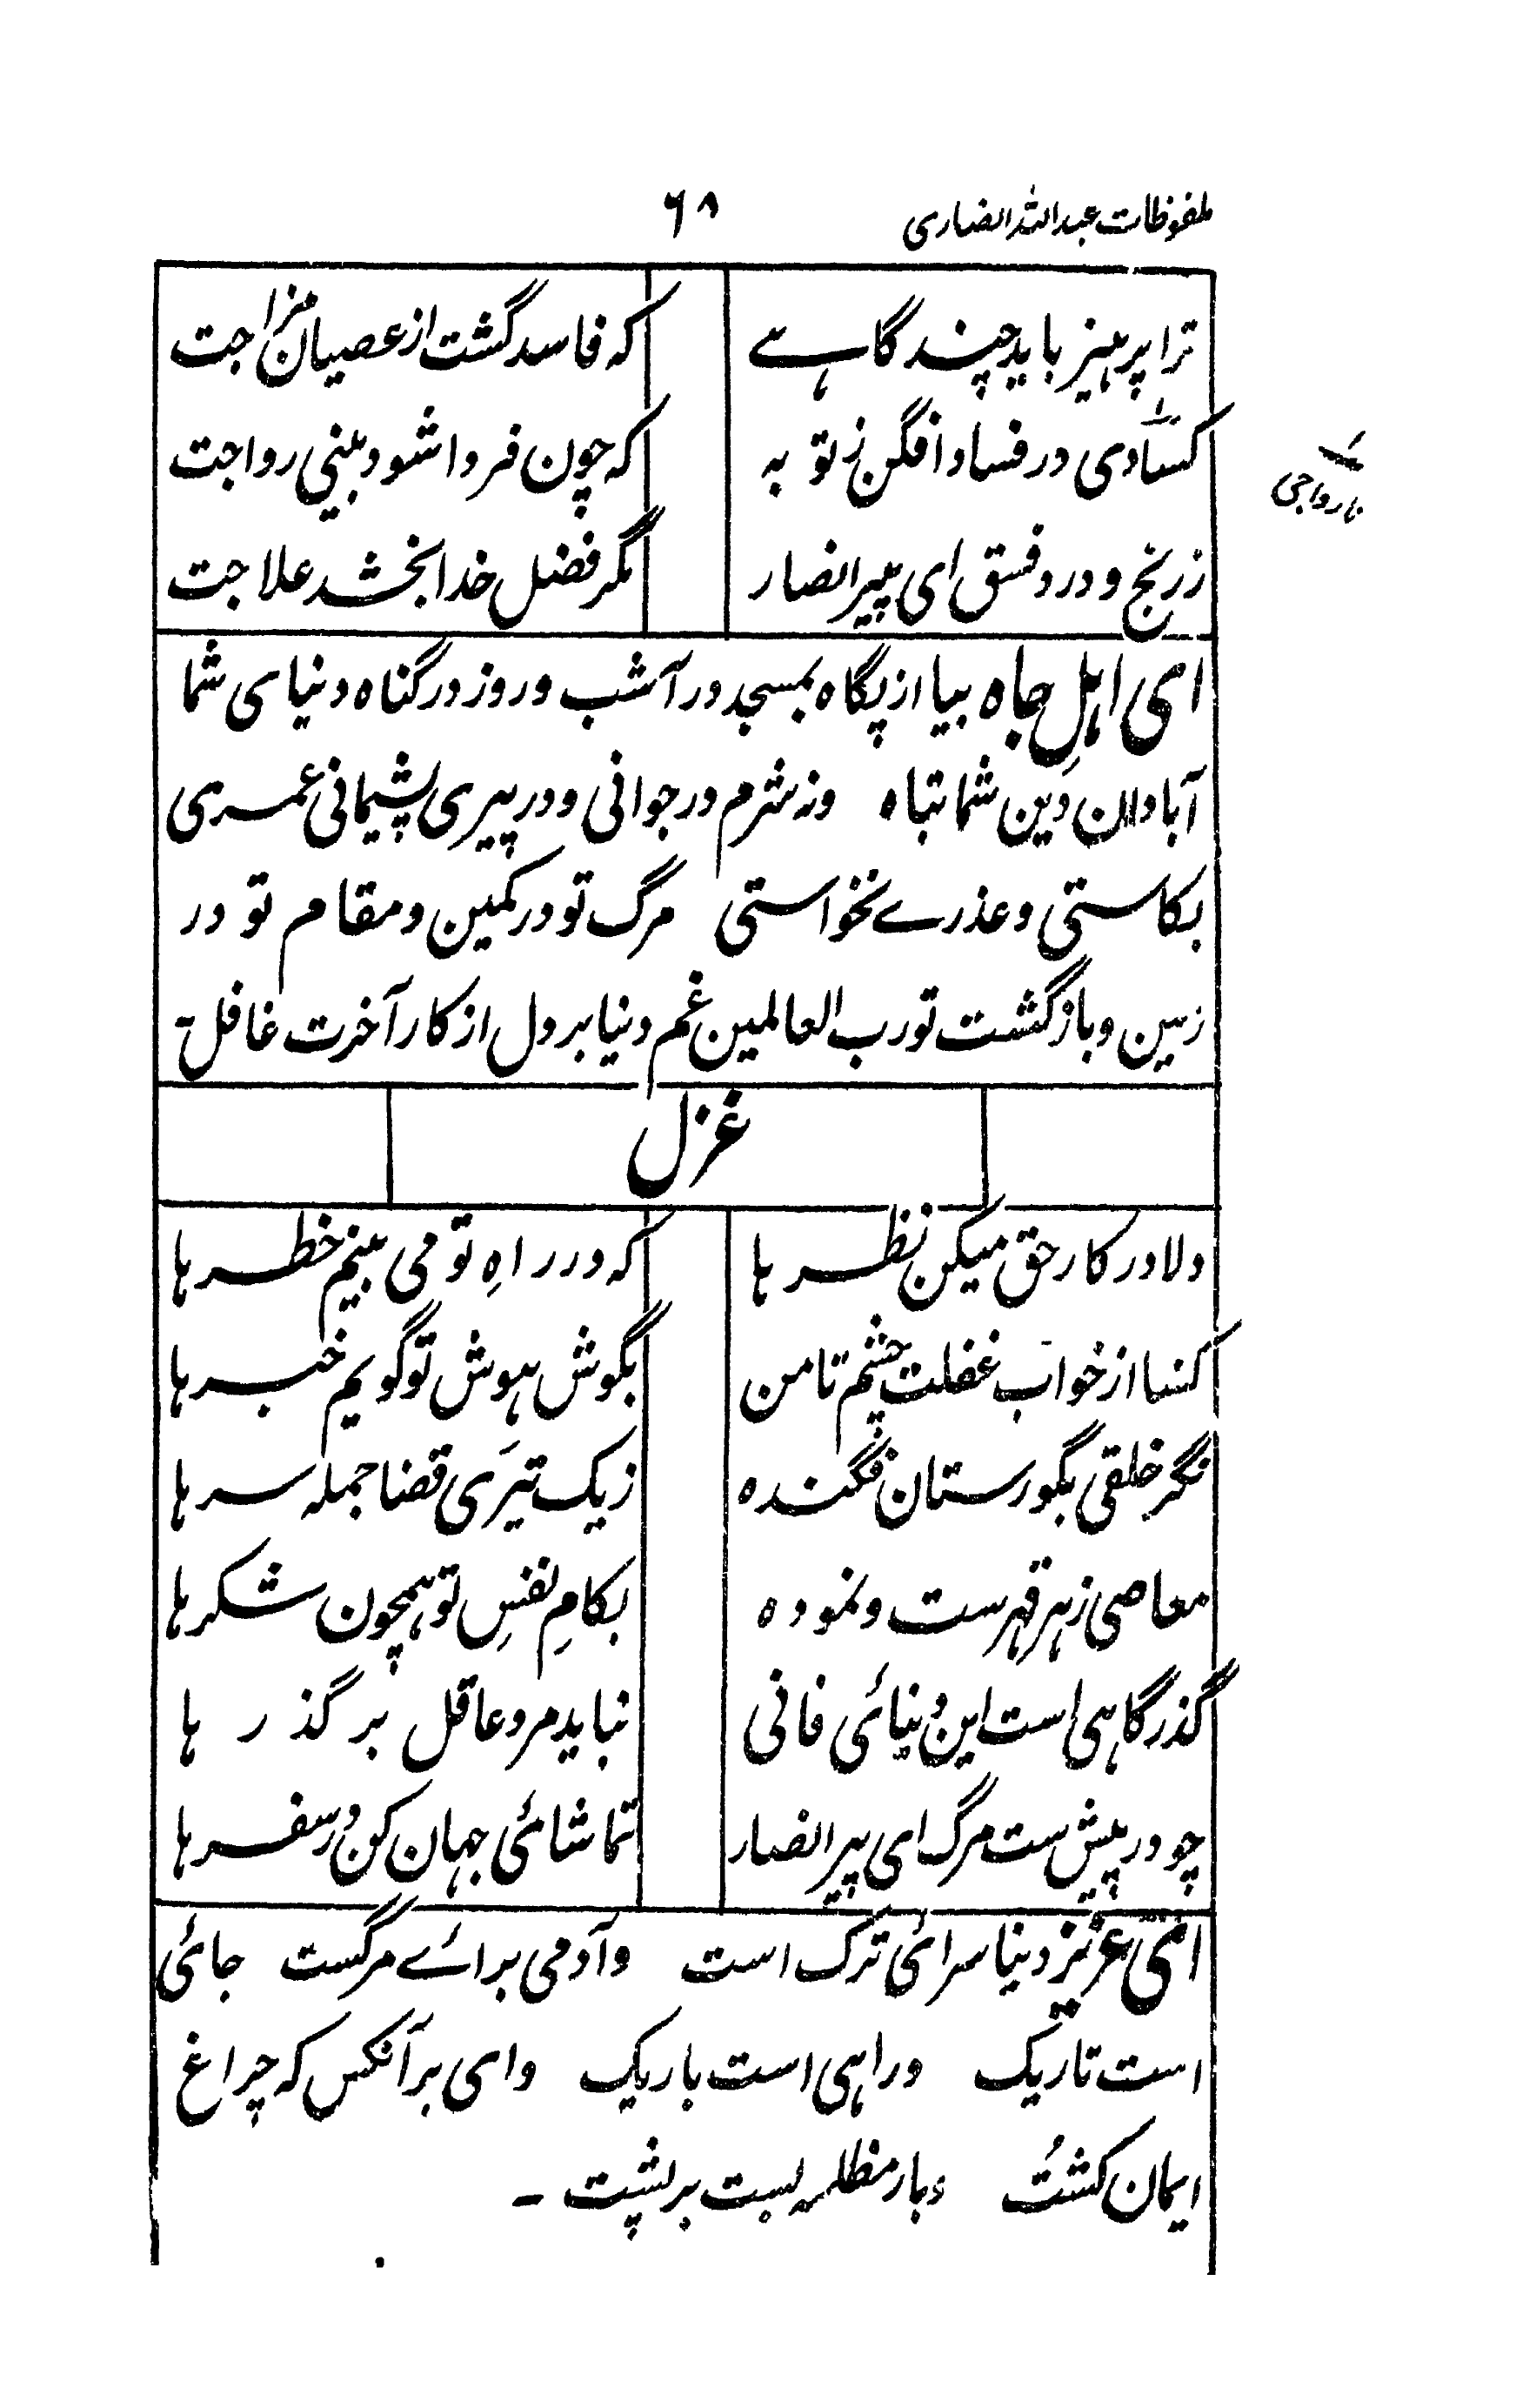 ملفوظات عبداللہ انصاری ۶۸
ترا پرہیز باید چند گاہے که فاسد گشت از عصیان مزاجت
کسادی در فساد افگن ز توبه که چون فردا شود بینی رواجت
ناروا جی
ز رنج و درد فسق ای پیر انصار مگر فضل خدا بخشد علاجت
ای اہلِ جاہ بیا از پگاہ بمسجد در آ شب و روز در گناہ دنیای شما
آبادان و دین شما تباہ ونہ شرم در جوانی و در پیری پشیمانی عمری
بکاستی و عذرے نخواستی مرگ تو در کمین و مقام تو در
زمین و بازگشت تو رب العالمین غم دنیا بر دل از کار آخرت غافل۔
غزل
دلا در کار حق میکن نظرہا که در راہِ تو می بینم خطرہا
کشا از خواب غفلت چشم تا من بگوش ہوش تو گویم خبرہا
نگر خلقی بگورستان فگندہ ز یک تیری قضا جملہ سرہا
معاصی زہر قہرست و نمودہ بکامِ نفسِ تو ہمچون شکرہا
گذرگاہی است این دنیائی فانی نباید مرد عاقل بر گذرہا
چو در پیش ست مرگ ای پیر انصار تماشائی جہان کن در سفرہا
ای عزیز دنیا سرائی ترک است و آدمی برائے مرگست جائی
است تاریک و راہی است باریک وای بر آنکس که چراغ
ایمان کشت و بار مظلمہ بست بر پشت ۔